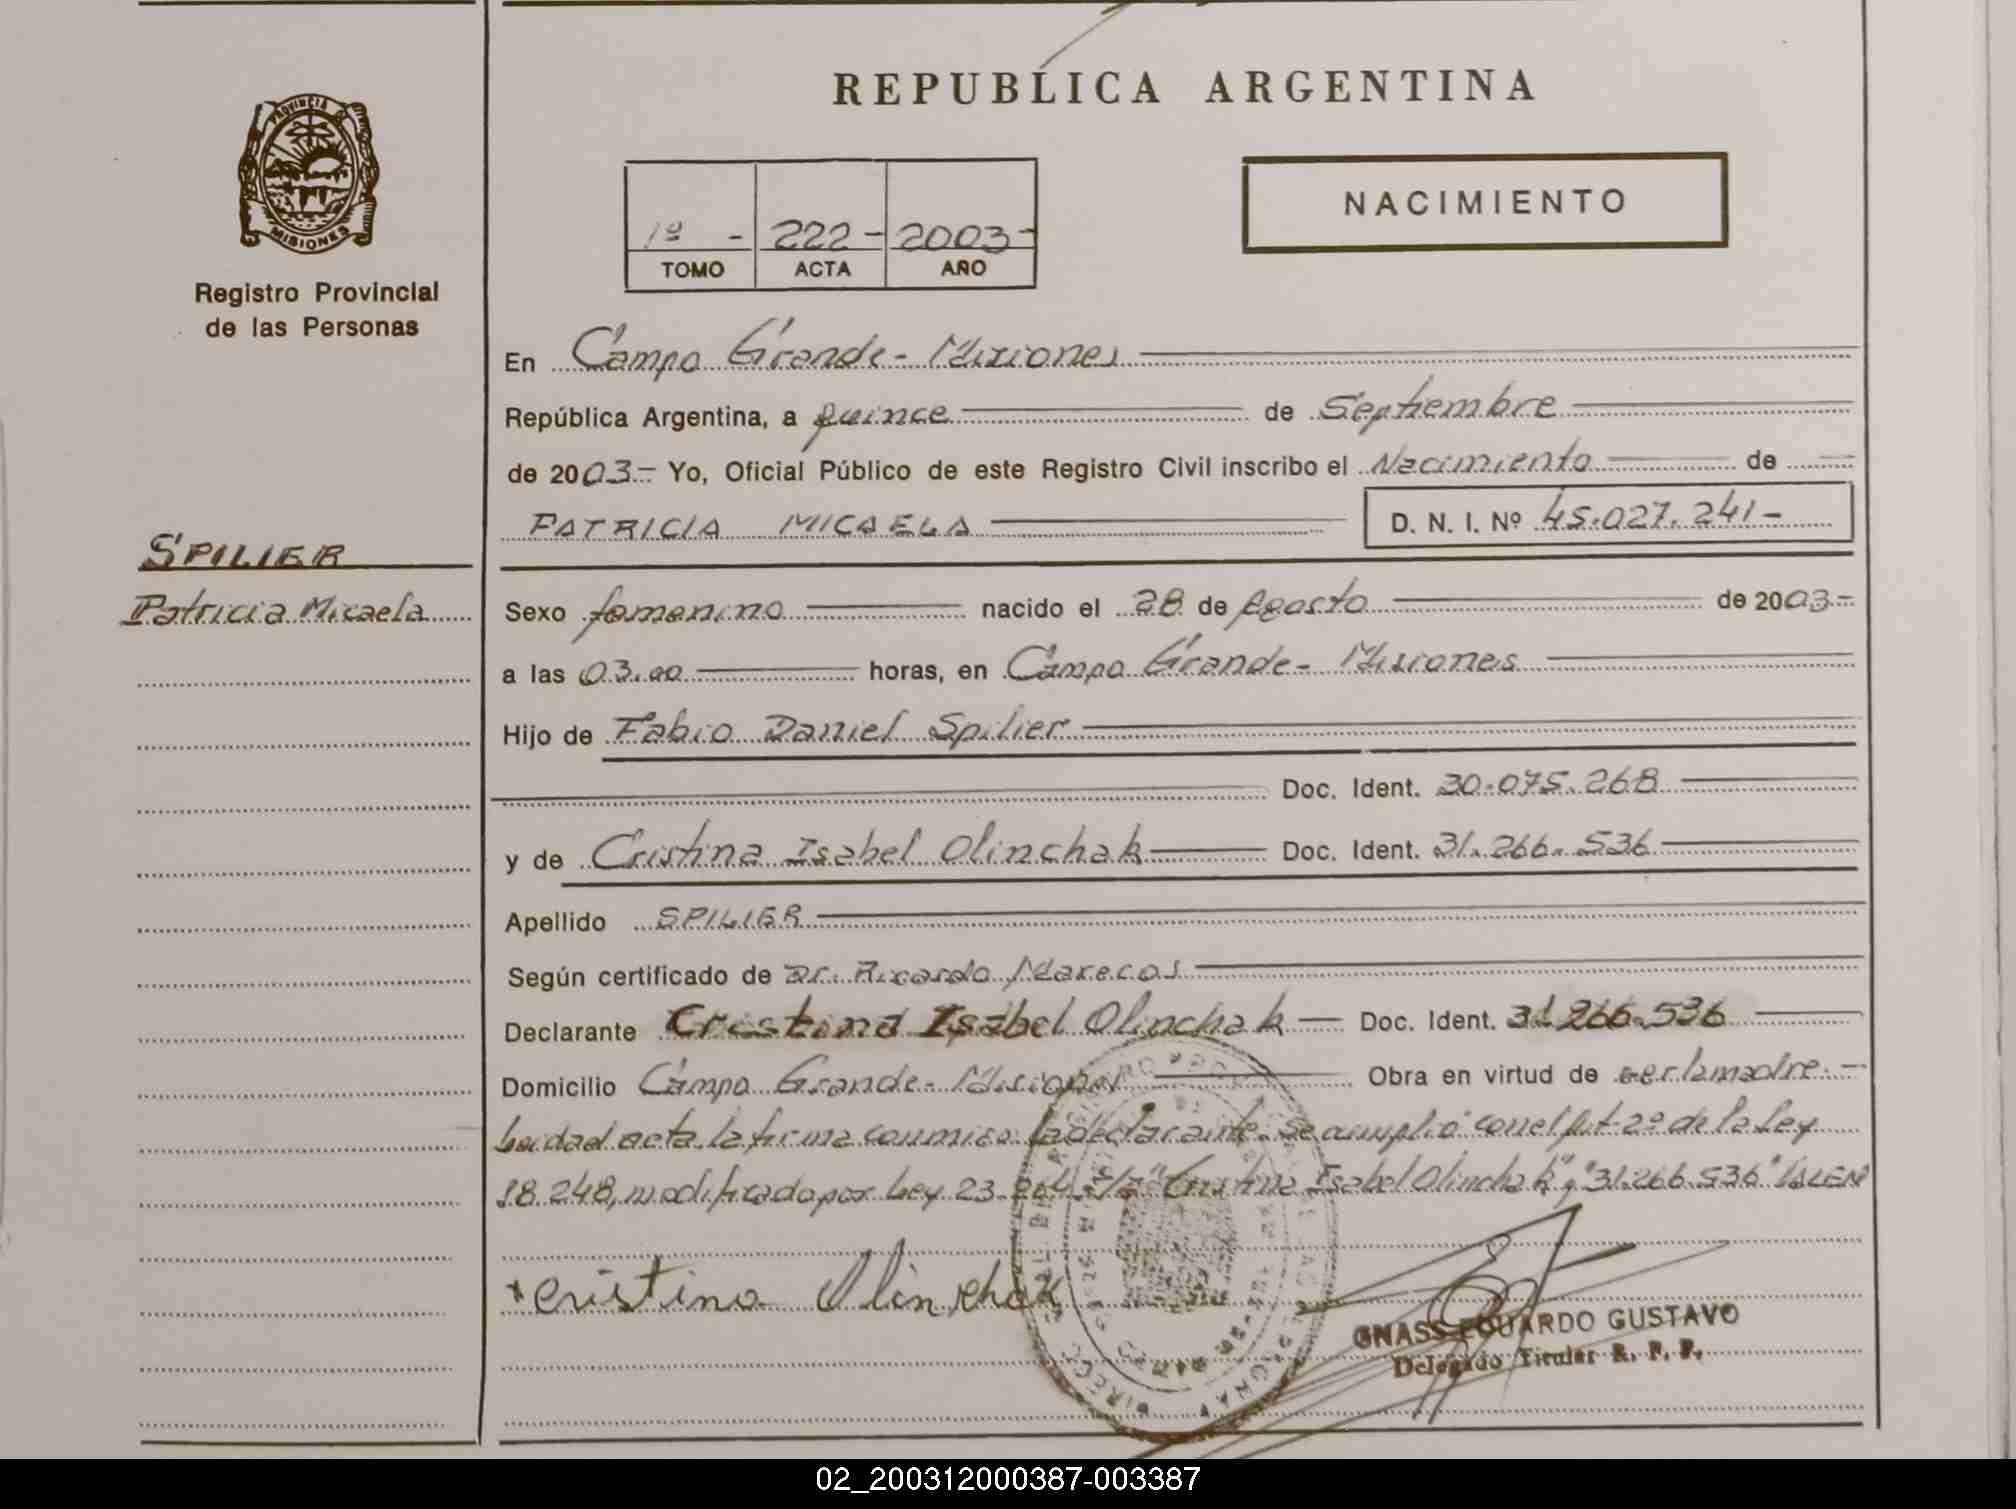 REPUBLICA ARGENTINA
PROVINCIA DE
MISIONES
Registro Provincial
de las Personas
1º - 222 - 2003 -
TOMO ACTA AÑO
NACIMIENTO
En Campo Grande - Misiones
República Argentina, a quince de Septiembre
de 2003.- Yo, Oficial Público de este Registro Civil inscribo el Nacimiento de
PATRICIA MICAELA D. N. I. Nº 45.027.241-
SPILIER
Patricia Micaela
Sexo femenino nacido el 28 de Agosto de 2003-
a las 03.00 horas, en Campo Grande - Misiones
Hijo de Fabio Daniel Spilier
Doc. Ident. 30.075.268
y de Cristina Isabel Olinchak Doc. Ident. 31.266.536
Apellido SPILIER
Según certificado de Dr. Ricardo Marecos
Declarante Cristina Isabel Olinchak Doc. Ident. 31.266.536
Domicilio Campo Grande - Misiones Obra en virtud de ser la madre.-
Leida el acta, la firma conmigo la declarante. Se cumplió con el Art. 2º de la Ley
18.248, modificado por Ley 23. "Cristina Isabel Olinchak" y "31.266.536" VALEN
Cristina Olinchak
GNASS EDUARDO GUSTAVO
Delegado Titular R. P. P.
02_200312000387-003387